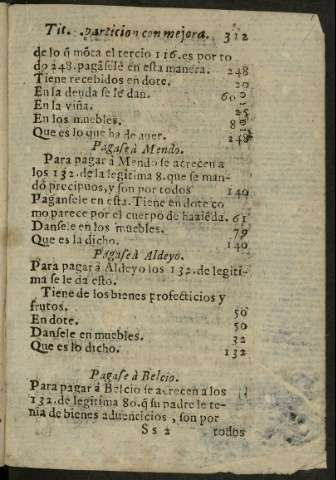 Tit. particion con mejora. 312
de lo q̃ mõta el tercio 116. es por to
do 248. pagãsele en esta manera. 248
Tiene recebidos en dote. 20
En la deuda se le dan. 60
En la viña.
En los muebles. 8
Que es lo que ha de auer. 248
Pagase à Mendo.
Para pagar à Mendo se acrecen a
los 132. de la legitima 8. que se man-
dò precipuos, y son por todos 140
Pagansele en esta. Tiene en dote co
mo parece por el cuerpo de haziẽda. 61
Dansele en los muebles. 79
Que es la dicho. 140
Pagase à Aldeyo.
Para pagar à Aldeyo los 132. de legiti-
ma se le da esto.
Tiene de los bienes profecticios y
frutos. 50
En dote. 50
Dansele en muebles. 32
Que es lo dicho. 132
Pagase à Belcio.
Para pagar à Belcio se acrecen a los
132. de legitima 80. q̃ su padre le te-
nia de bienes aduenticios, son por
Ss 2 todos